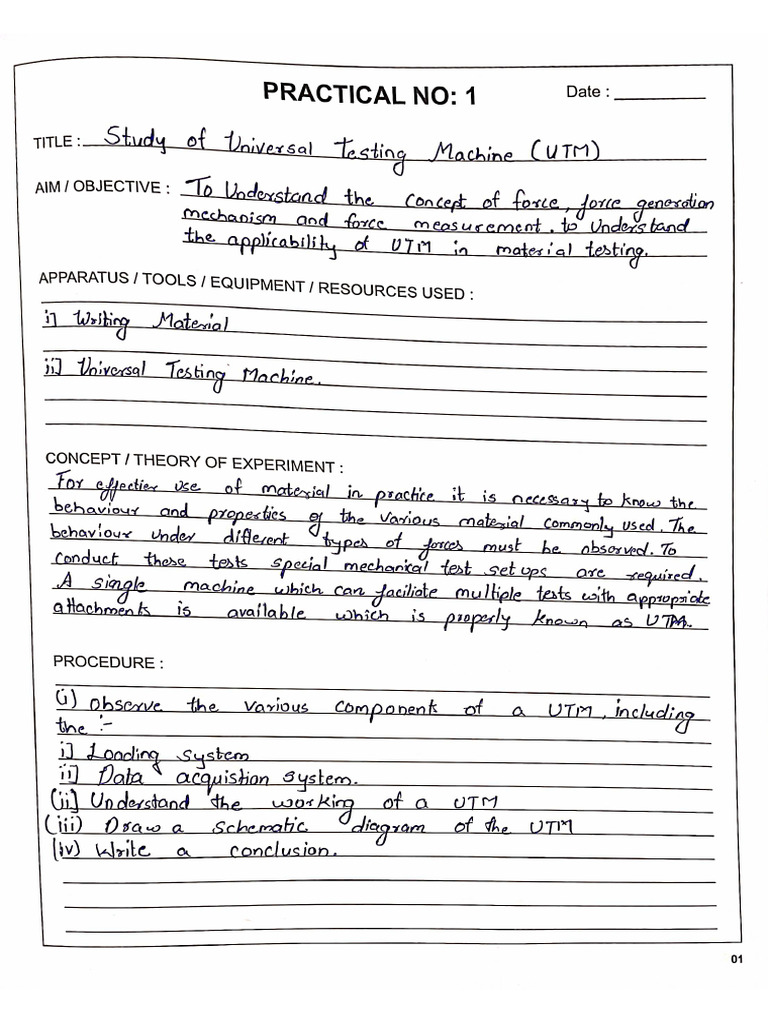 PRACTICAL NO: 1
Date :
TITLE : Study of Universal Testing Machine (UTM)
AIM / OBJECTIVE : To Understand the concept of force, force generation
mechanism and force measurement. to Understand
the applicability of UTM in material testing.
APPARATUS / TOOLS / EQUIPMENT / RESOURCES USED :
i] Writing Material
ii] Universal Testing Machine.
CONCEPT / THEORY OF EXPERIMENT :
For effectier use of material in practice it is necessary to know the
behaviour and properties of the various material commonly used. The
behaviour under different types of forces must be observed. To
conduct these tests special mechanical test set ups are required.
A single machine which can faciliate multiple tests with appropriate
attachments is available which is properly known as UTM.
PROCEDURE :
(i) Observe the various component of a UTM, including
the :-
i] Loading system
ii] Data acquistion system.
(ii] Understand the working of a UTM
(iii) Draw a schematic diagram of the UTM
(iv) Write a conclusion.
01